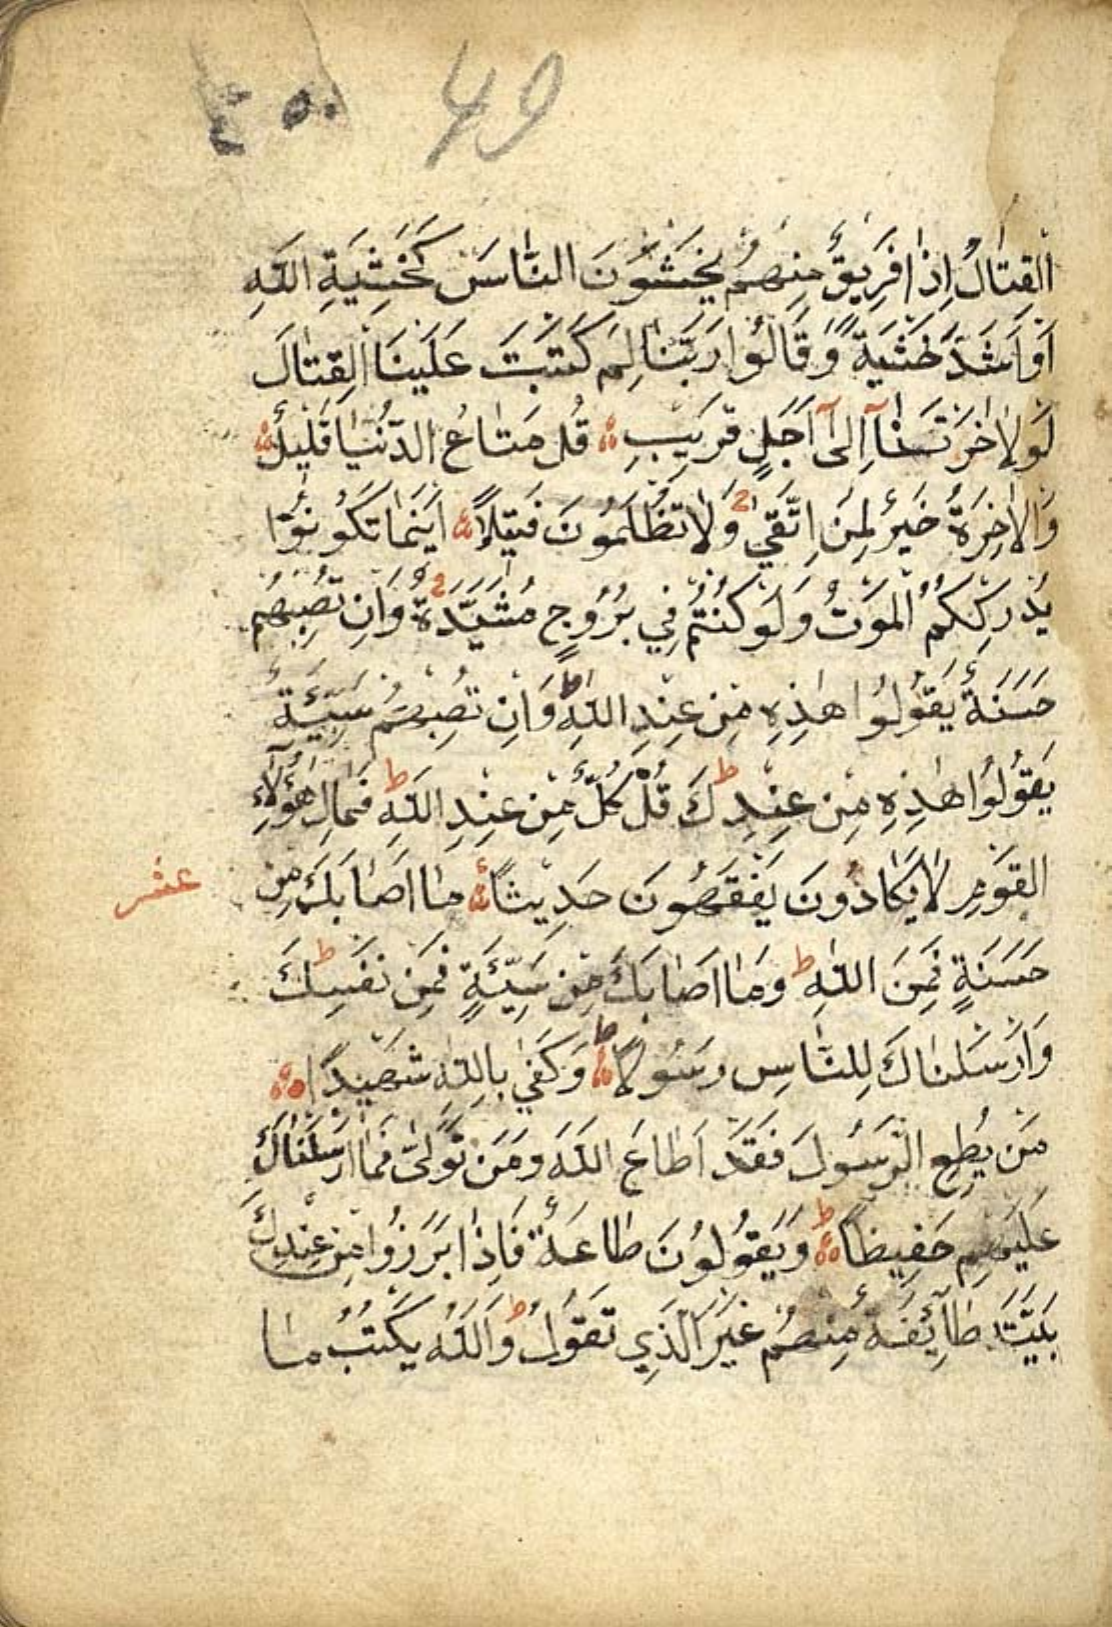 49
٥٠
القِتَالُ اِذَا فَرِيقٌ مِنْهُمْ يَخْشَوْنَ النَّاسَ كَخَشْيَةِ اللّٰهِ
اَوْ اَشَدَّ خَشْيَةً وَقَالُوا رَبَّنَا لِمَ كَتَبْتَ عَلَيْنَا القِتَالَ
لَوْلَا اَخَّرْتَنَا اِلٰى اَجَلٍ قَرِيبٍ قُلْ مَتَاعُ الدُّنْيَا قَلِيلٌ
وَالْاٰخِرَةُ خَيْرٌ لِمَنِ اتَّقٰى وَلَا تُظْلَمُونَ فَتِيلًا اَيْنَمَا تَكُونُوا
يُدْرِكْكُمُ الْمَوْتُ وَلَوْ كُنْتُمْ فِي بُرُوجٍ مُشَيَّدَةٍ وَاِنْ تُصِبْهُمْ
حَسَنَةٌ يَقُولُوا هٰذِهِ مِنْ عِنْدِ اللّٰهِ ط وَاِنْ تُصِبْهُمْ سَيِّئَةٌ
يَقُولُوا هٰذِهِ مِنْ عِنْدِكَ ط قُلْ كُلٌّ مِنْ عِنْدِ اللّٰهِ ط فَمَالِ هٰؤُلَاءِ
القَوْمِ لَا يَكَادُونَ يَفْقَهُونَ حَدِيثًا مَا اَصَابَكَ مِنْ
عشر
حَسَنَةٍ فَمِنَ اللّٰهِ ط وَمَا اَصَابَكَ مِنْ سَيِّئَةٍ فَمِنْ نَفْسِكَ ط
وَاَرْسَلْنَاكَ لِلنَّاسِ رَسُولًا ط وَكَفٰى بِاللّٰهِ شَهِيدًا
مَنْ يُطِعِ الرَّسُولَ فَقَدْ اَطَاعَ اللّٰهَ وَمَنْ تَوَلّٰى فَمَا اَرْسَلْنَاكَ
عَلَيْهِمْ حَفِيظًا ط وَيَقُولُونَ طَاعَةٌ فَاِذَا بَرَزُوا مِنْ عِنْدِكَ
بَيَّتَ طَآئِفَةٌ مِنْهُمْ غَيْرَ الَّذِي تَقُولُ ط وَاللّٰهُ يَكْتُبُ مَا